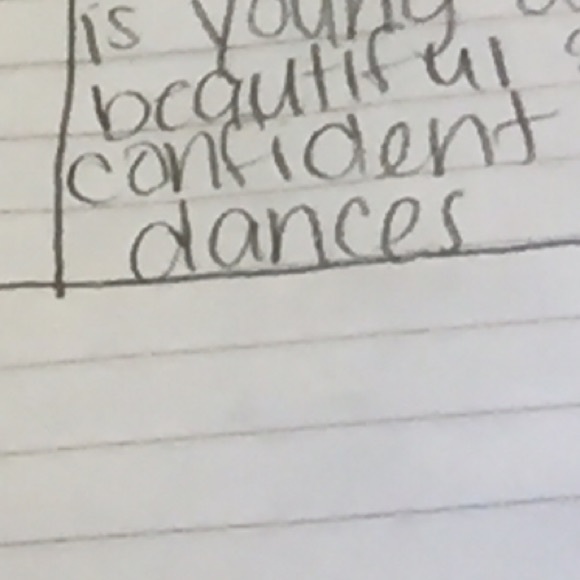 is young
beautiful
confident
dances